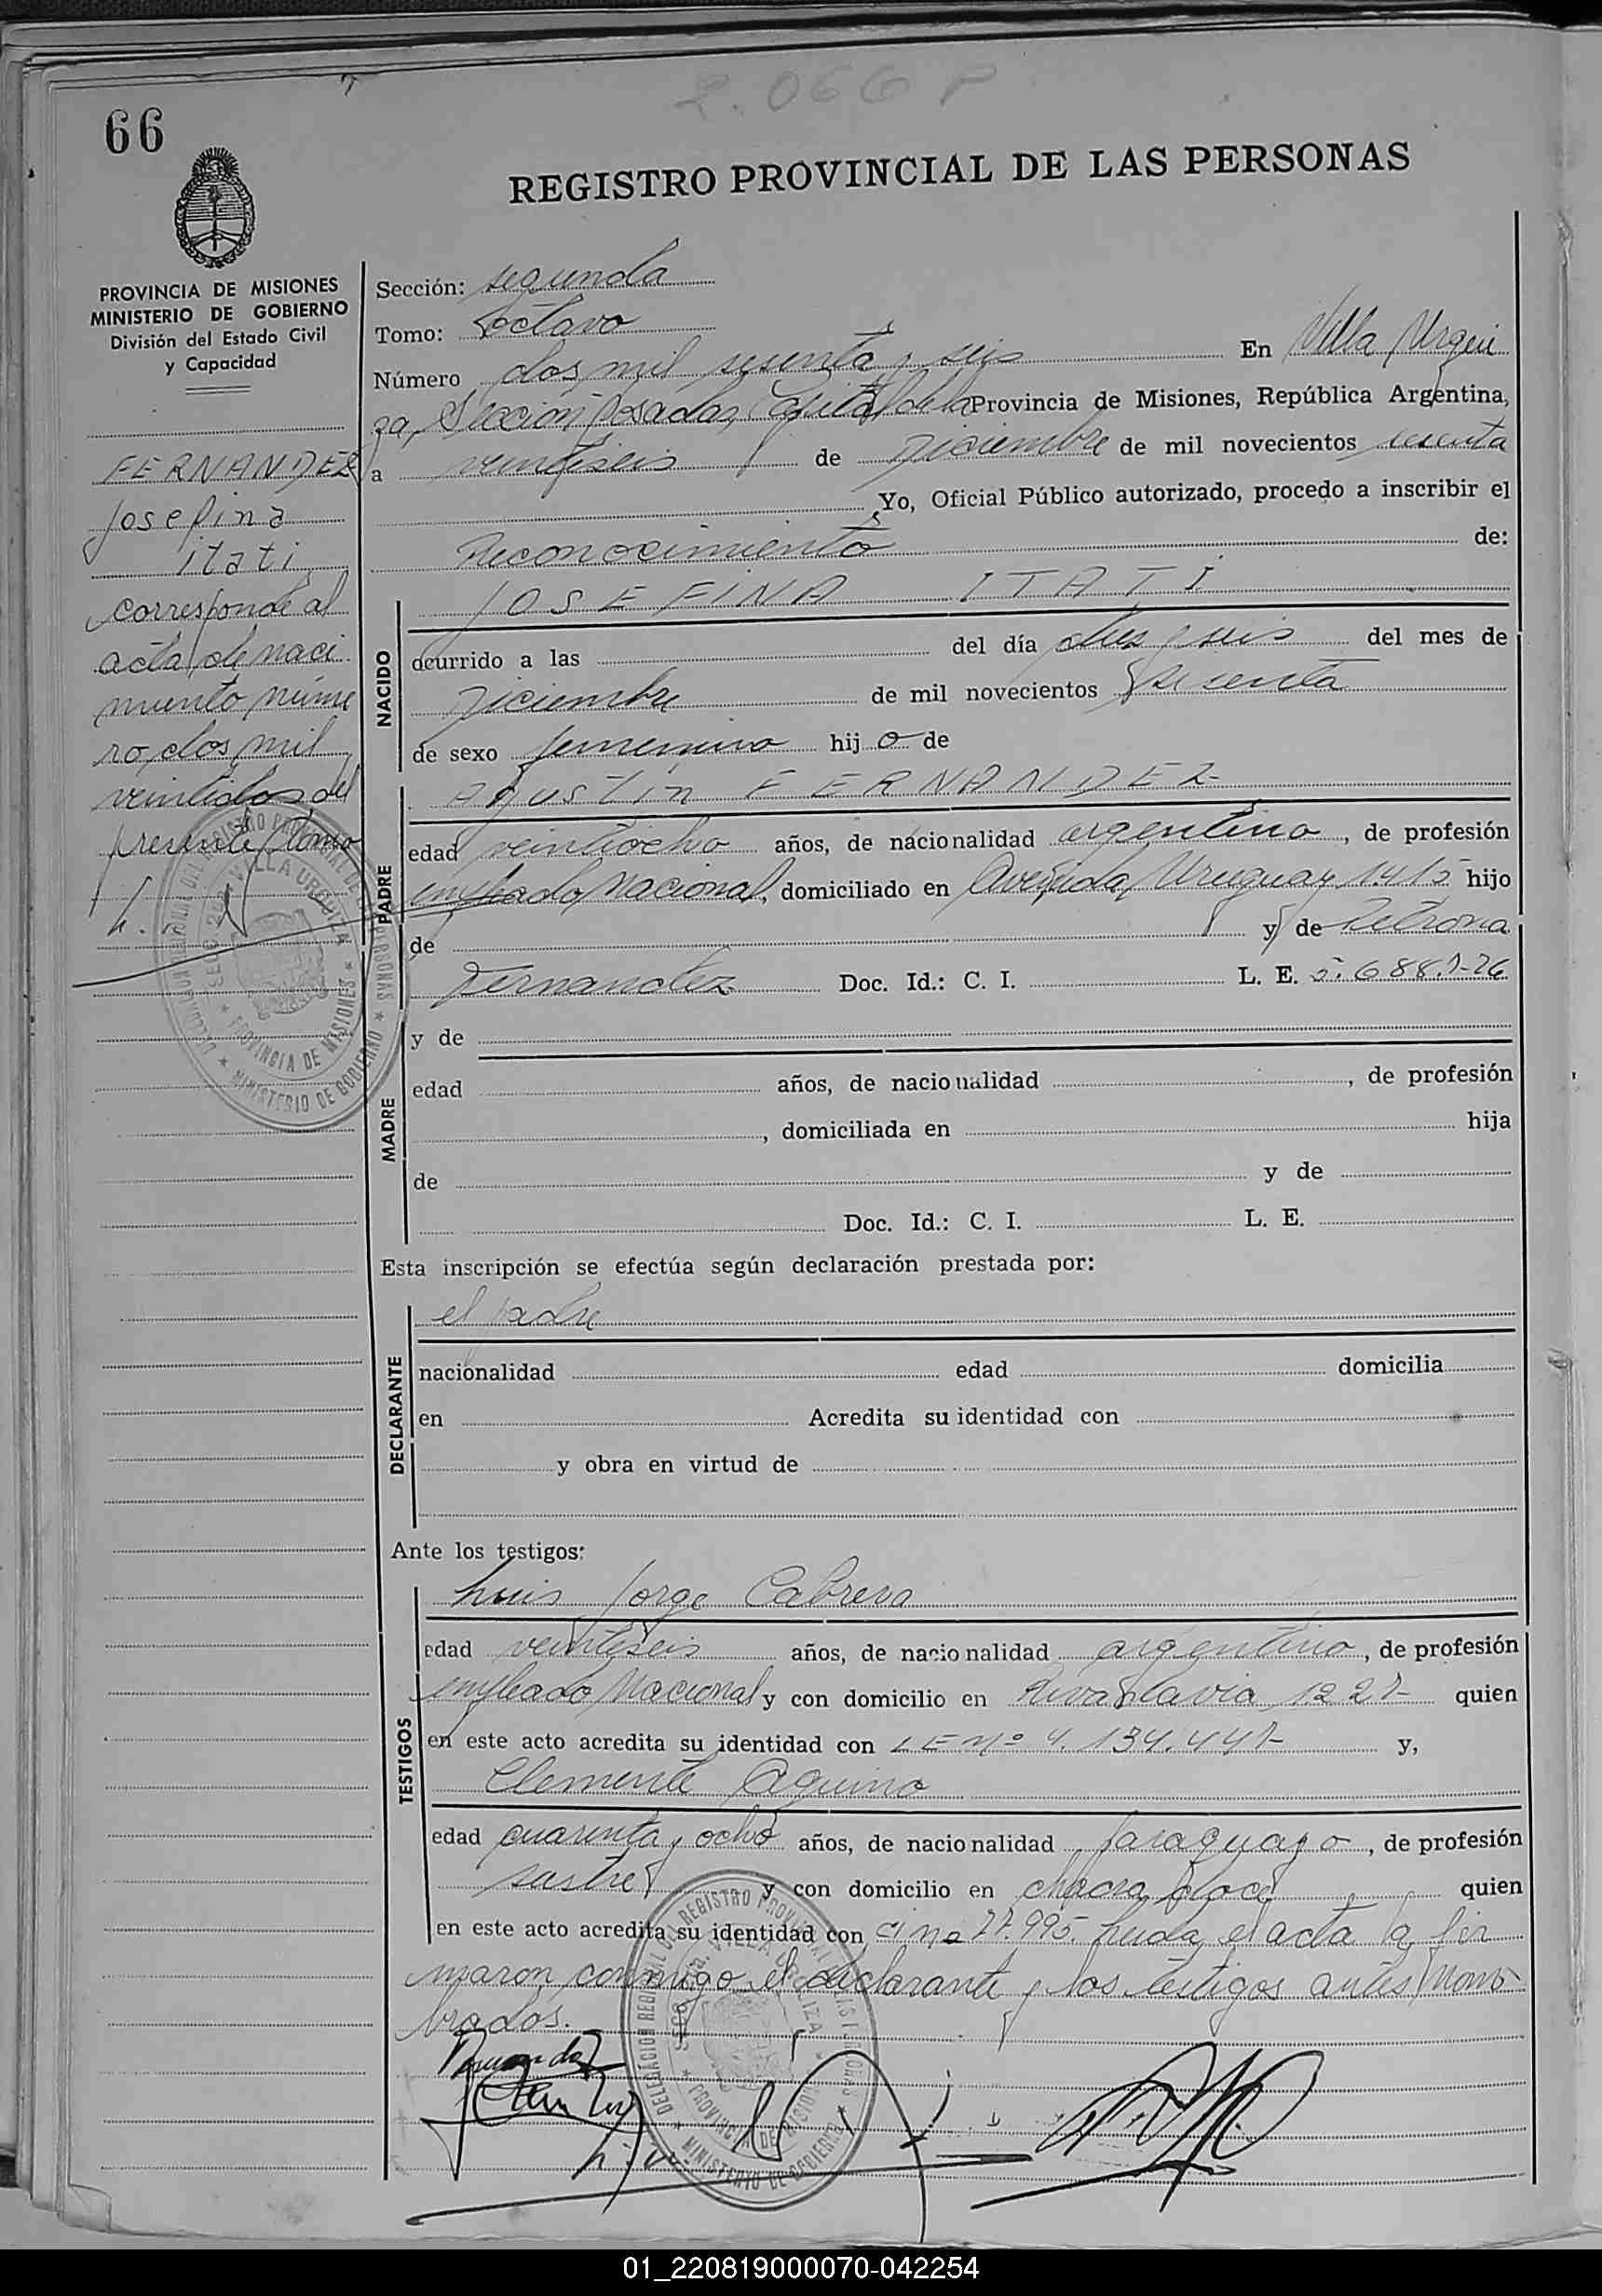 2.066 P
66
REGISTRO PROVINCIAL DE LAS PERSONAS
PROVINCIA DE MISIONES
MINISTERIO DE GOBIERNO
División del Estado Civil
y Capacidad
FERNANDEZ
Josefina
itati
corresponde al
acta de naci
miento núme
ro dos mil
veintidos del
presente tomo
Sección: segunda
Tomo: octavo
Número dos mil sesenta y seis En Villa Urqui
za, Sección Posadas, Capital de la Provincia de Misiones, República Argentina,
a veintiseis de Diciembre de mil novecientos sesenta
Yo, Oficial Público autorizado, procedo a inscribir el
Reconocimiento de:
NACIDO
JOSEFINA ITATI
ocurrido a las del día diez y seis del mes de
Diciembre de mil novecientos sesenta
de sexo femenino hij o de
PADRE
Agustin FERNANDEZ
edad veintiocho años, de nacionalidad argentino, de profesión
empleado Nacional, domiciliado en Avenida Uruguay 1415 hijo
de y de Petrona
Fernandez Doc. Id.: C. I. L. E.
MADRE
y de
edad años, de nacionalidad , de profesión
, domiciliada en hija
de y de
Doc. Id.: C. I. L. E.
Esta inscripción se efectúa según declaración prestada por:
DECLARANTE
el padre
nacionalidad edad domicilia
en Acredita su identidad con
y obra en virtud de
Ante los testigos:
TESTIGOS
Luis Jorge Cabrera
edad veintiseis años, de nacionalidad argentino, de profesión
empleado Nacional y con domicilio en Rivadavia quien
en este acto acredita su identidad con LE Nº y,
Clemente Aquino
edad cuarenta y ocho años, de nacionalidad paraguayo, de profesión
sastre y con domicilio en chacra doce quien
en este acto acredita su identidad con ci nº 27.995. Leida el acta la fir
maron conmigo el declarante y los testigos antes nom
brados.
DELEGACION REGIONAL DEL REGISTRO PROVINCIAL DE LAS PERSONAS
SECC. 2da. VILLA URQUIZA
PROVINCIA DE MISIONES
MINISTERIO DE GOBIERNO
01_220819000070-042254